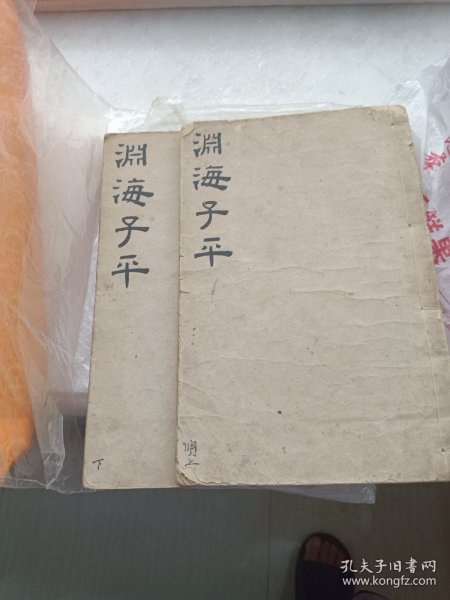 淵海子平
淵海子平
上
下
孔夫子旧书网
www.kongfz.com